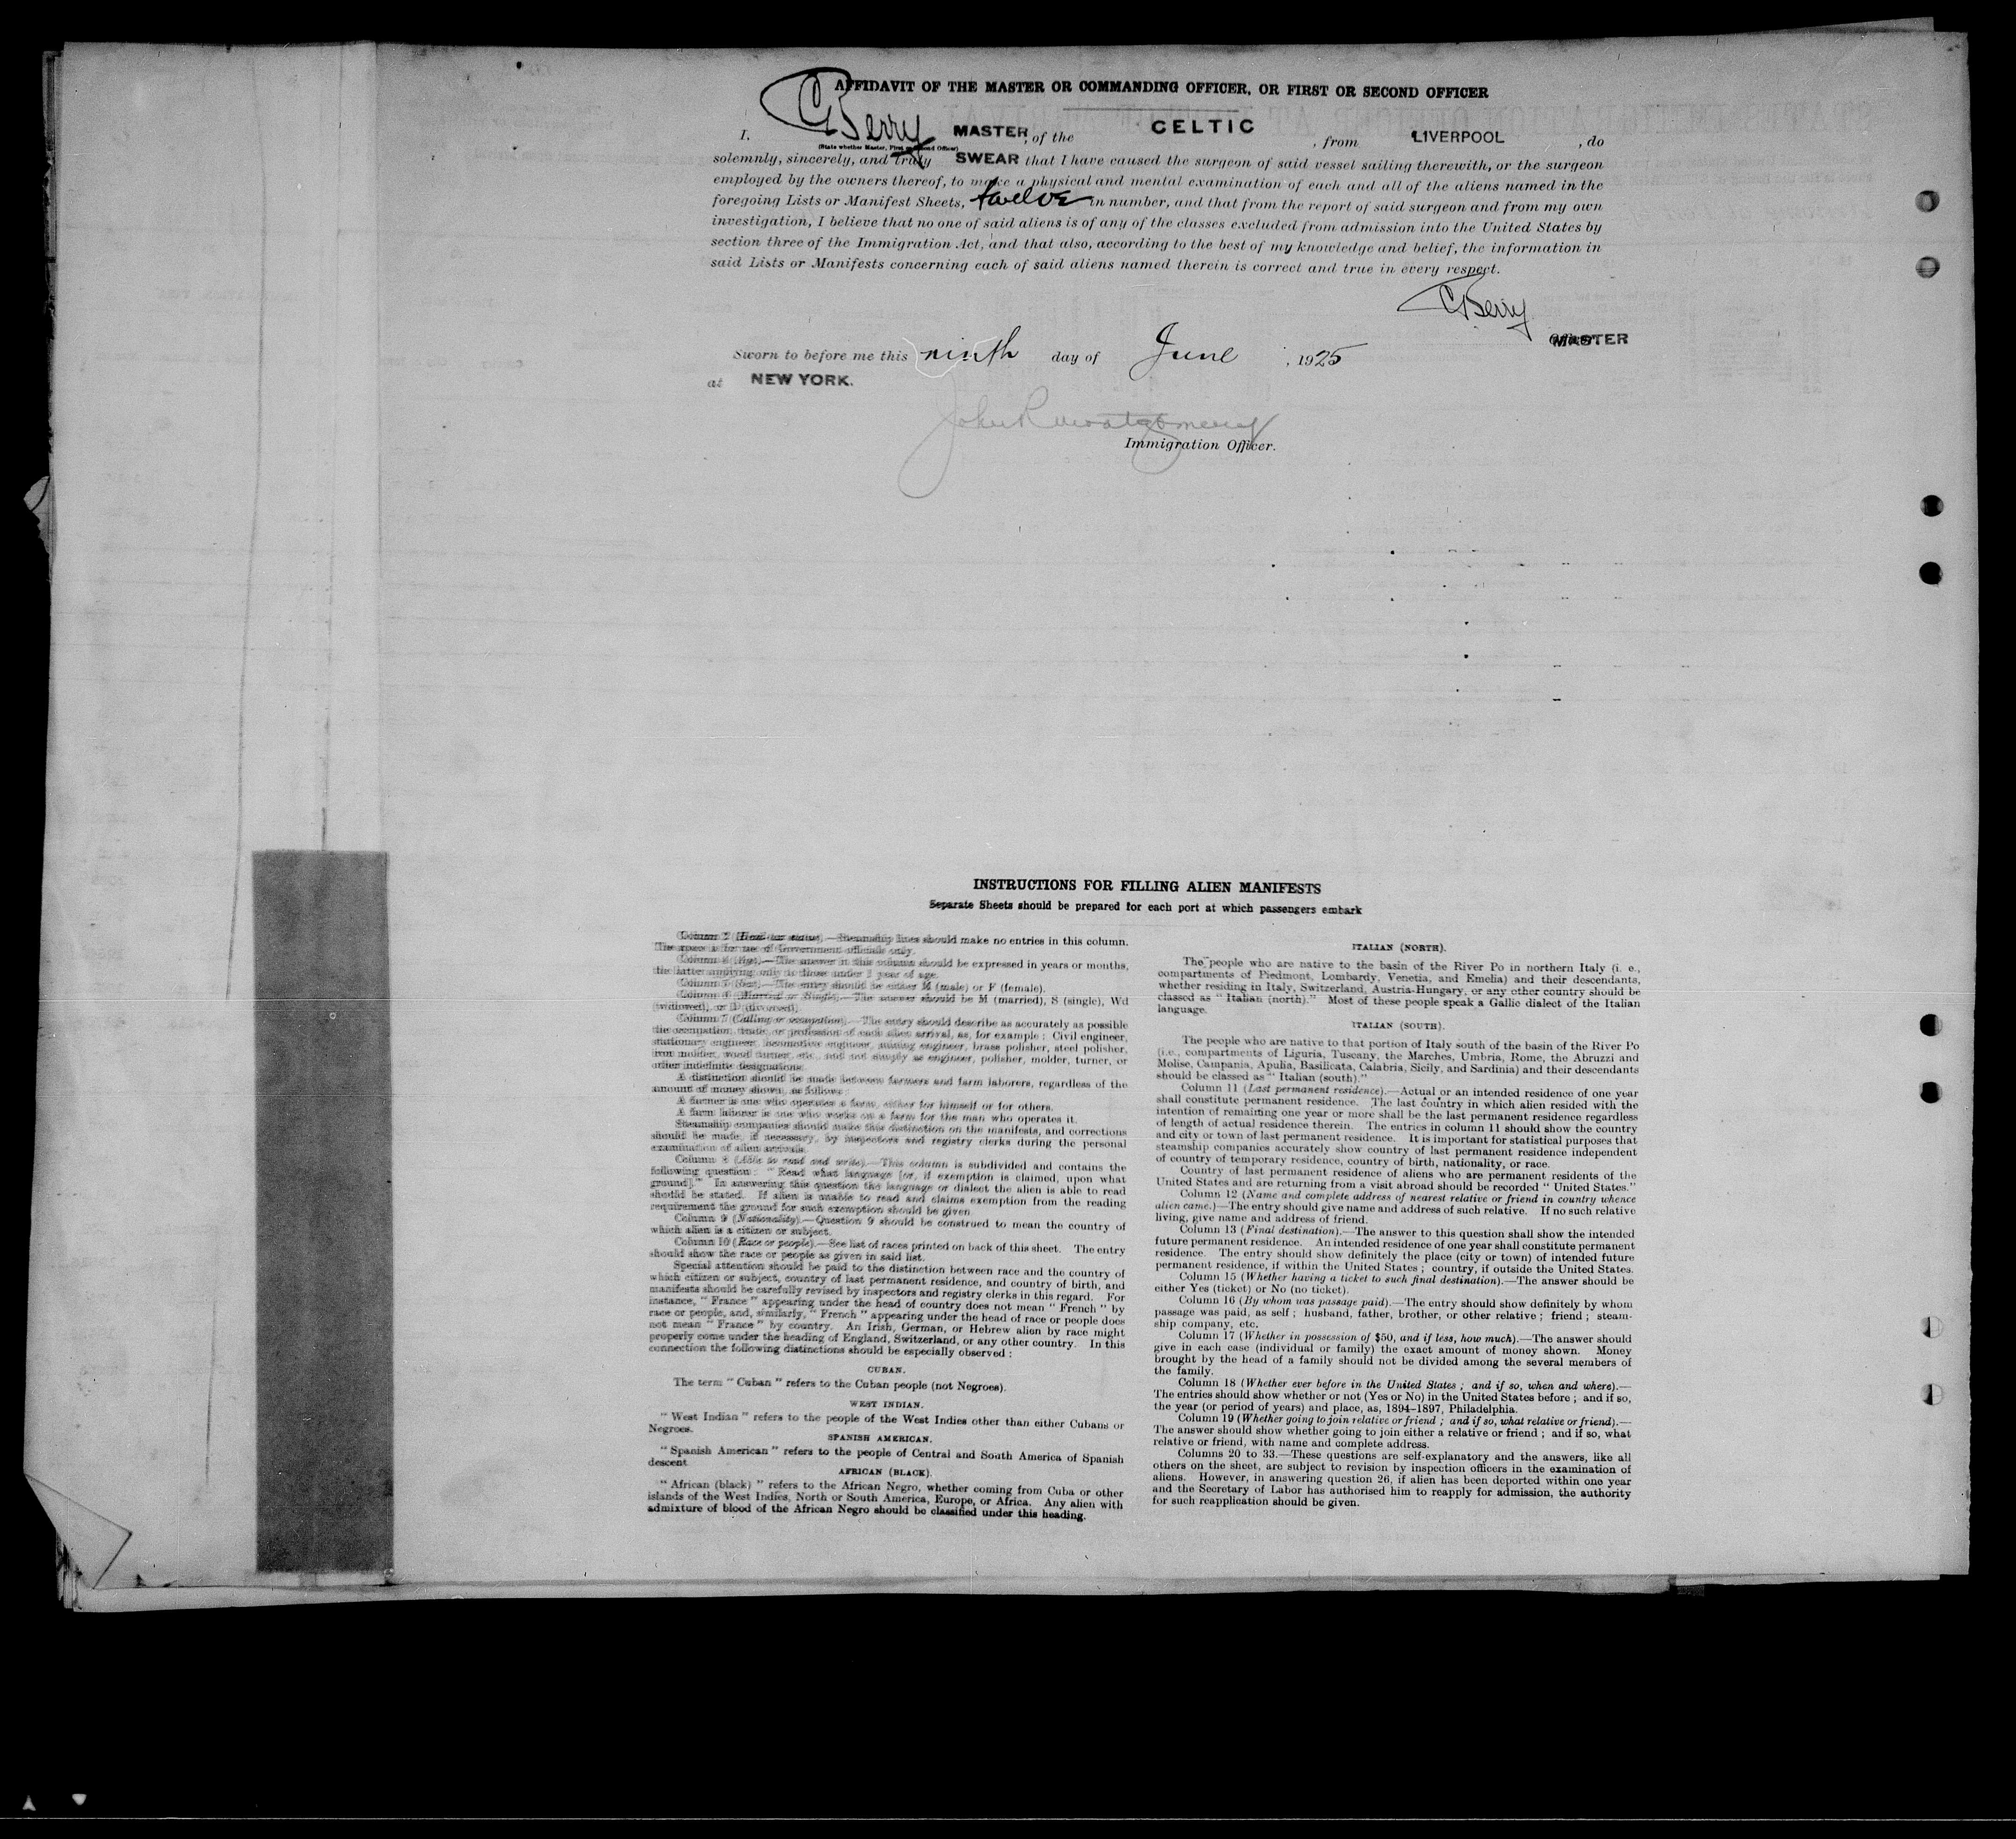 AFFIDAVIT OF THE MASTER OR COMMANDING OFFICER, OR FIRST OR SECOND OFFICER
I, CBerry MASTER, of the CELTIC, from LIVERPOOL, do
(State whether Master, First or Second Officer)
solemnly, sincerely, and truly SWEAR that I have caused the surgeon of said vessel sailing therewith, or the surgeon
employed by the owners thereof, to make a physical and mental examination of each and all of the aliens named in the
foregoing Lists or Manifest Sheets, twelve in number, and that from the report of said surgeon and from my own
investigation, I believe that no one of said aliens is of any of the classes excluded from admission into the United States by
section three of the Immigration Act, and that also, according to the best of my knowledge and belief, the information in
said Lists or Manifests concerning each of said aliens named therein is correct and true in every respect.
CBerry
MASTER
Sworn to before me this ninth day of June, 1925
at NEW YORK.
John R Montgomery
Immigration Officer.
INSTRUCTIONS FOR FILLING ALIEN MANIFESTS
Separate Sheets should be prepared for each port at which passengers embark
Column 2 (Head-tax status).—Steamship lines should make no entries in this column.
The space is for use of Government officials only.
Column 4 (Age).—The answer in this column should be expressed in years or months,
the latter applying only to those under 1 year of age.
Column 5 (Sex).—The entry should be either M (male) or F (female).
Column 6 (Married or Single).—The answer should be M (married), S (single), Wd
(widowed), or D (divorced).
Column 7 (Calling or occupation).—The entry should describe as accurately as possible
the occupation, trade, or profession of each alien arrival, as, for example: Civil engineer,
stationary engineer, locomotive engineer, mining engineer, brass polisher, steel polisher,
iron molder, wood turner, etc., and not simply as engineer, polisher, molder, turner, or
other indefinite designations.
A distinction should be made between farmers and farm laborers, regardless of the
amount of money shown, as follows:
A farmer is one who operates a farm, either for himself or for others.
A farm laborer is one who works on a farm for the man who operates it.
Steamship companies should make this distinction on the manifests, and corrections
should be made, if necessary, by inspectors and registry clerks during the personal
examination of alien arrivals.
Column 8 (Able to read and write).—This column is subdivided and contains the
following question: " Read what language [or, if exemption is claimed, upon what
ground]." In answering this question the language or dialect the alien is able to read
should be stated. If alien is unable to read and claims exemption from the reading
requirement the ground for such exemption should be given.
Column 9 (Nationality).—Question 9 should be construed to mean the country of
which alien is a citizen or subject.
Column 10 (Race or people).—See list of races printed on back of this sheet. The entry
should show the race or people as given in said list.
Special attention should be paid to the distinction between race and the country of
which citizen or subject, country of last permanent residence, and country of birth, and
manifests should be carefully revised by inspectors and registry clerks in this regard. For
instance, " France " appearing under the head of country does not mean " French " by
race or people, and, similarly, " French " appearing under the head of race or people does
not mean " France " by country. An Irish, German, or Hebrew alien by race might
properly come under the heading of England, Switzerland, or any other country. In this
connection the following distinctions should be especially observed:
CUBAN.
The term " Cuban " refers to the Cuban people (not Negroes).
WEST INDIAN.
" West Indian " refers to the people of the West Indies other than either Cubans or
Negroes.
SPANISH AMERICAN.
" Spanish American " refers to the people of Central and South America of Spanish
descent.
AFRICAN (BLACK).
" African (black) " refers to the African Negro, whether coming from Cuba or other
islands of the West Indies, North or South America, Europe, or Africa. Any alien with
admixture of blood of the African Negro should be classified under this heading.
ITALIAN (NORTH).
The people who are native to the basin of the River Po in northern Italy (i. e.,
compartments of Piedmont, Lombardy, Venetia, and Emelia) and their descendants,
whether residing in Italy, Switzerland, Austria-Hungary, or any other country should be
classed as " Italian (north)." Most of these people speak a Gallic dialect of the Italian
language.
ITALIAN (SOUTH).
The people who are native to that portion of Italy south of the basin of the River Po
(i.e., compartments of Liguria, Tuscany, the Marches, Umbria, Rome, the Abruzzi and
Molise, Campania, Apulia, Basilicata, Calabria, Sicily, and Sardinia) and their descendants
should be classed as " Italian (south)."
Column 11 (Last permanent residence).—Actual or an intended residence of one year
shall constitute permanent residence. The last country in which alien resided with the
intention of remaining one year or more shall be the last permanent residence regardless
of length of actual residence therein. The entries in column 11 should show the country
and city or town of last permanent residence. It is important for statistical purposes that
steamship companies accurately show country of last permanent residence independent
of country of temporary residence, country of birth, nationality, or race.
Country of last permanent residence of aliens who are permanent residents of the
United States and are returning from a visit abroad should be recorded " United States."
Column 12 (Name and complete address of nearest relative or friend in country whence
alien came.)—The entry should give name and address of such relative. If no such relative
living, give name and address of friend.
Column 13 (Final destination).—The answer to this question shall show the intended
future permanent residence. An intended residence of one year shall constitute permanent
residence. The entry should show definitely the place (city or town) of intended future
permanent residence, if within the United States; country, if outside the United States.
Column 15 (Whether having a ticket to such final destination).—The answer should be
either Yes (ticket) or No (no ticket).
Column 16 (By whom was passage paid).—The entry should show definitely by whom
passage was paid, as self; husband, father, brother, or other relative; friend; steam-
ship company, etc.
Column 17 (Whether in possession of $50, and if less, how much).—The answer should
give in each case (individual or family) the exact amount of money shown. Money
brought by the head of a family should not be divided among the several members of
the family.
Column 18 (Whether ever before in the United States; and if so, when and where).—
The entries should show whether or not (Yes or No) in the United States before; and if so,
the year (or period of years) and place, as, 1894-1897, Philadelphia.
Column 19 (Whether going to join relative or friend; and if so, what relative or friend).—
The answer should show whether going to join either a relative or friend; and if so, what
relative or friend, with name and complete address.
Columns 20 to 33.—These questions are self-explanatory and the answers, like all
others on the sheet, are subject to revision by inspection officers in the examination of
aliens. However, in answering question 26, if alien has been deported within one year
and the Secretary of Labor has authorised him to reapply for admission, the authority
for such reapplication should be given.